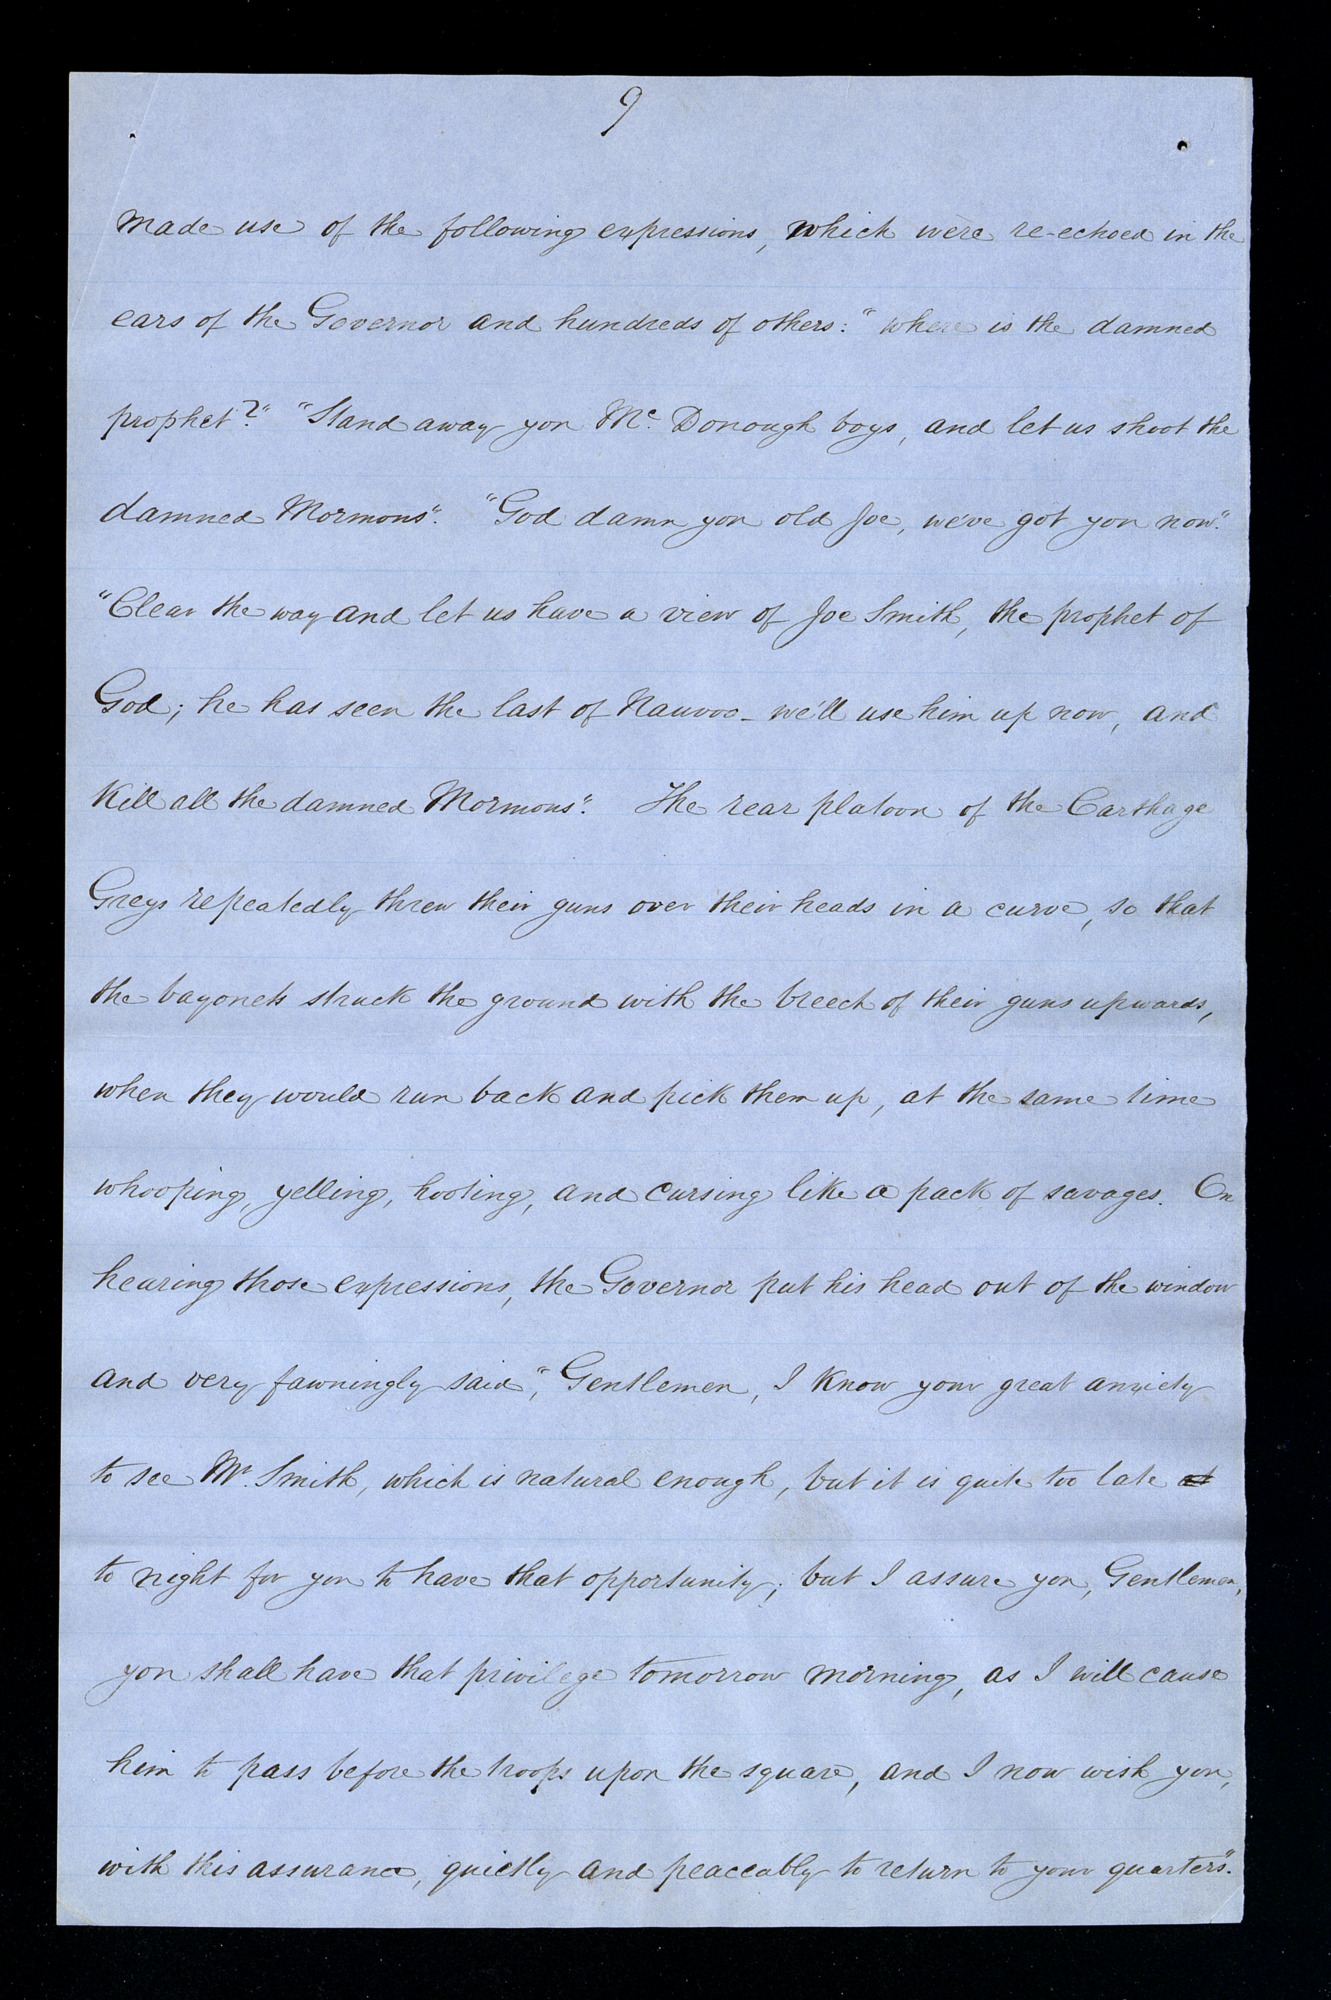 9
made use of the following expressions, which were re-echoed in the
ears of the Governor and hundreds of others: "where is the damned
prophet?" "Stand away you Mc. Donough boys, and let us shoot the
damned Mormons". "God damn you old Joe, we've got you now".
"Clear the way and let us have a view of Joe Smith, the prophet of
God; he has seen the last of Nauvoo - we'll use him up now, and
kill all the damned Mormons". The rear platoon of the Carthage
Greys repeatedly threw their guns over their heads in a curve, so that
the bayonets struck the ground with the breech of their guns upwards,
when they would run back and pick them up, at the same time
whooping, yelling, hooting, and cursing like a pack of savages. On
hearing those expressions, the Governor put his head out of the window
and very fawningly said", Gentlemen, I know your great anxiety
to see Mr. Smith, which is natural enough, but it is quite too late at
to night for you to have that opportunity; but I assure you, Gentlemen,
you shall have that privilege tomorrow morning, as I will cause
him to pass before the troops upon the square, and I now wish you,
with this assurance, quietly and peaceably to return to your quarters".